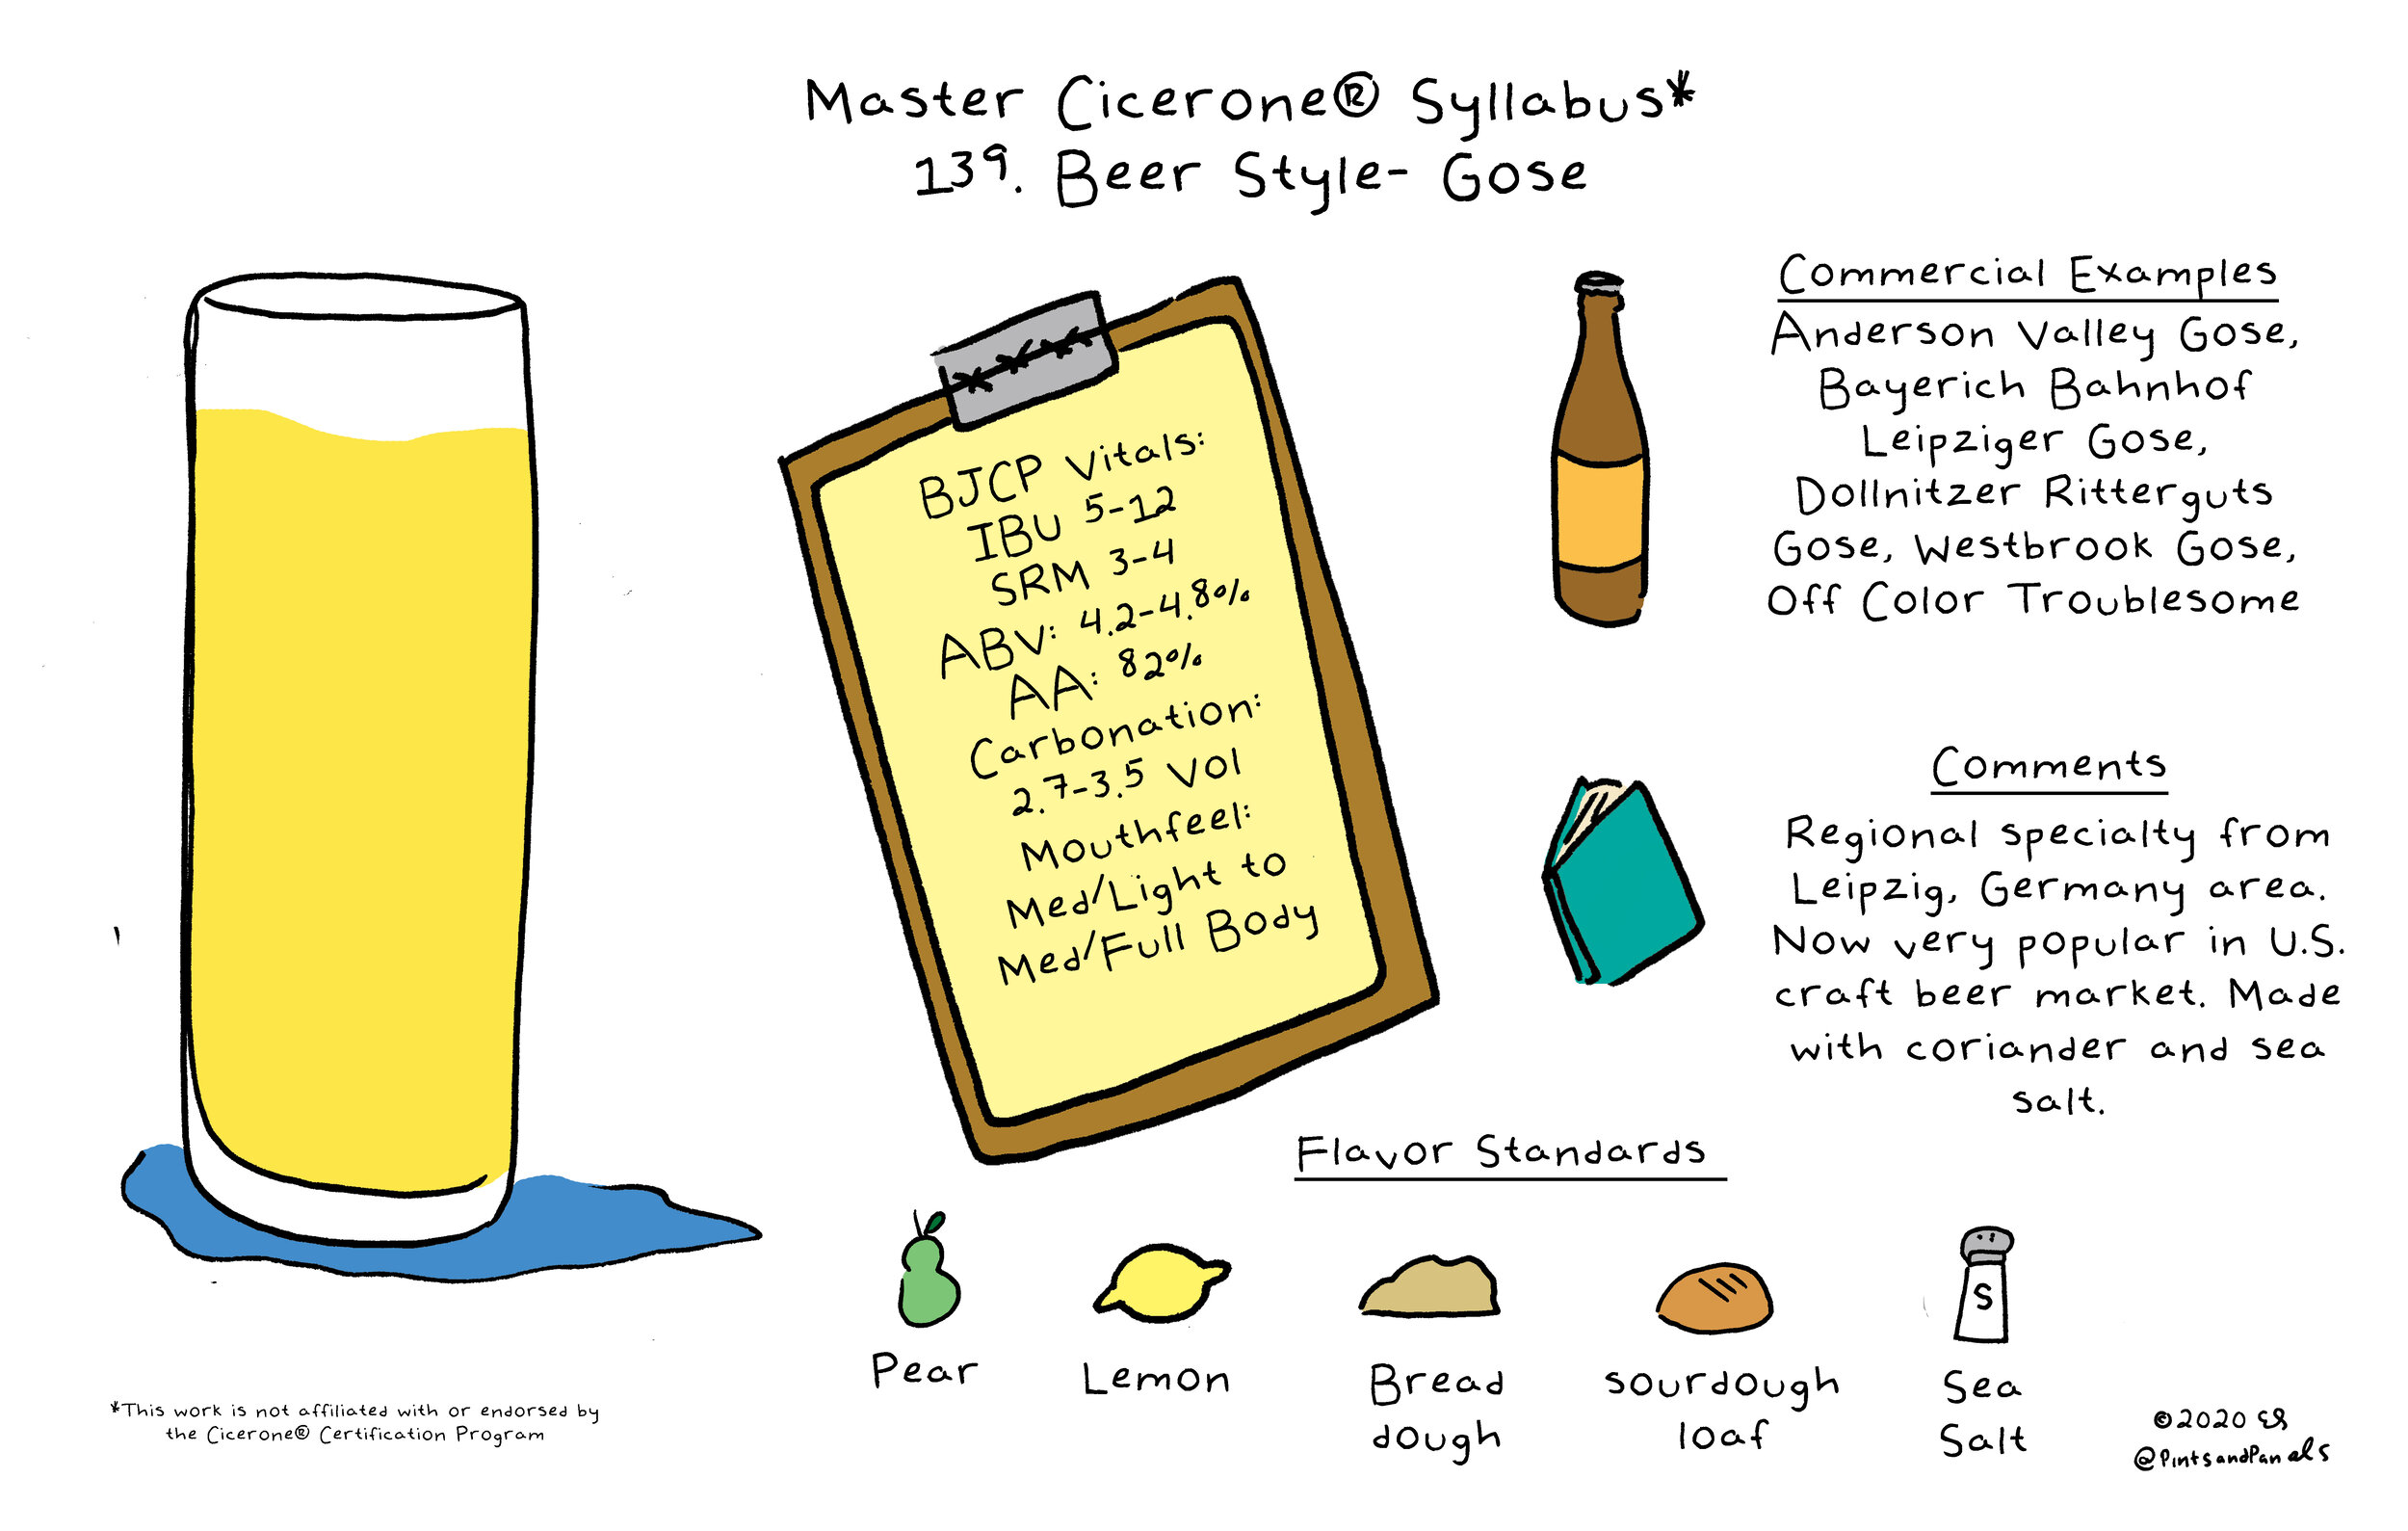 Master Cicerone® Syllabus*
139. Beer Style- Gose
BJCP Vitals:
IBU 5-12
SRM 3-4
ABV: 4.2-4.8%
AA: 82%
Carbonation:
2.7-3.5 Vol
Mouthfeel:
Med/Light to
Med/Full Body
Commercial Examples
Anderson Valley Gose,
Bayerich Bahnhof
Leipziger Gose,
Dollnitzer Ritterguts
Gose, Westbrook Gose,
Off Color Troublesome
Comments
Regional specialty from
Leipzig, Germany area.
Now very popular in U.S.
craft beer market. Made
with coriander and sea
salt.
Flavor Standards
S
Pear
Lemon
Bread
dough
sourdough
loaf
Sea
Salt
*This work is not affiliated with or endorsed by
the Cicerone® Certification Program
©2020 ES
@PintsandPanels